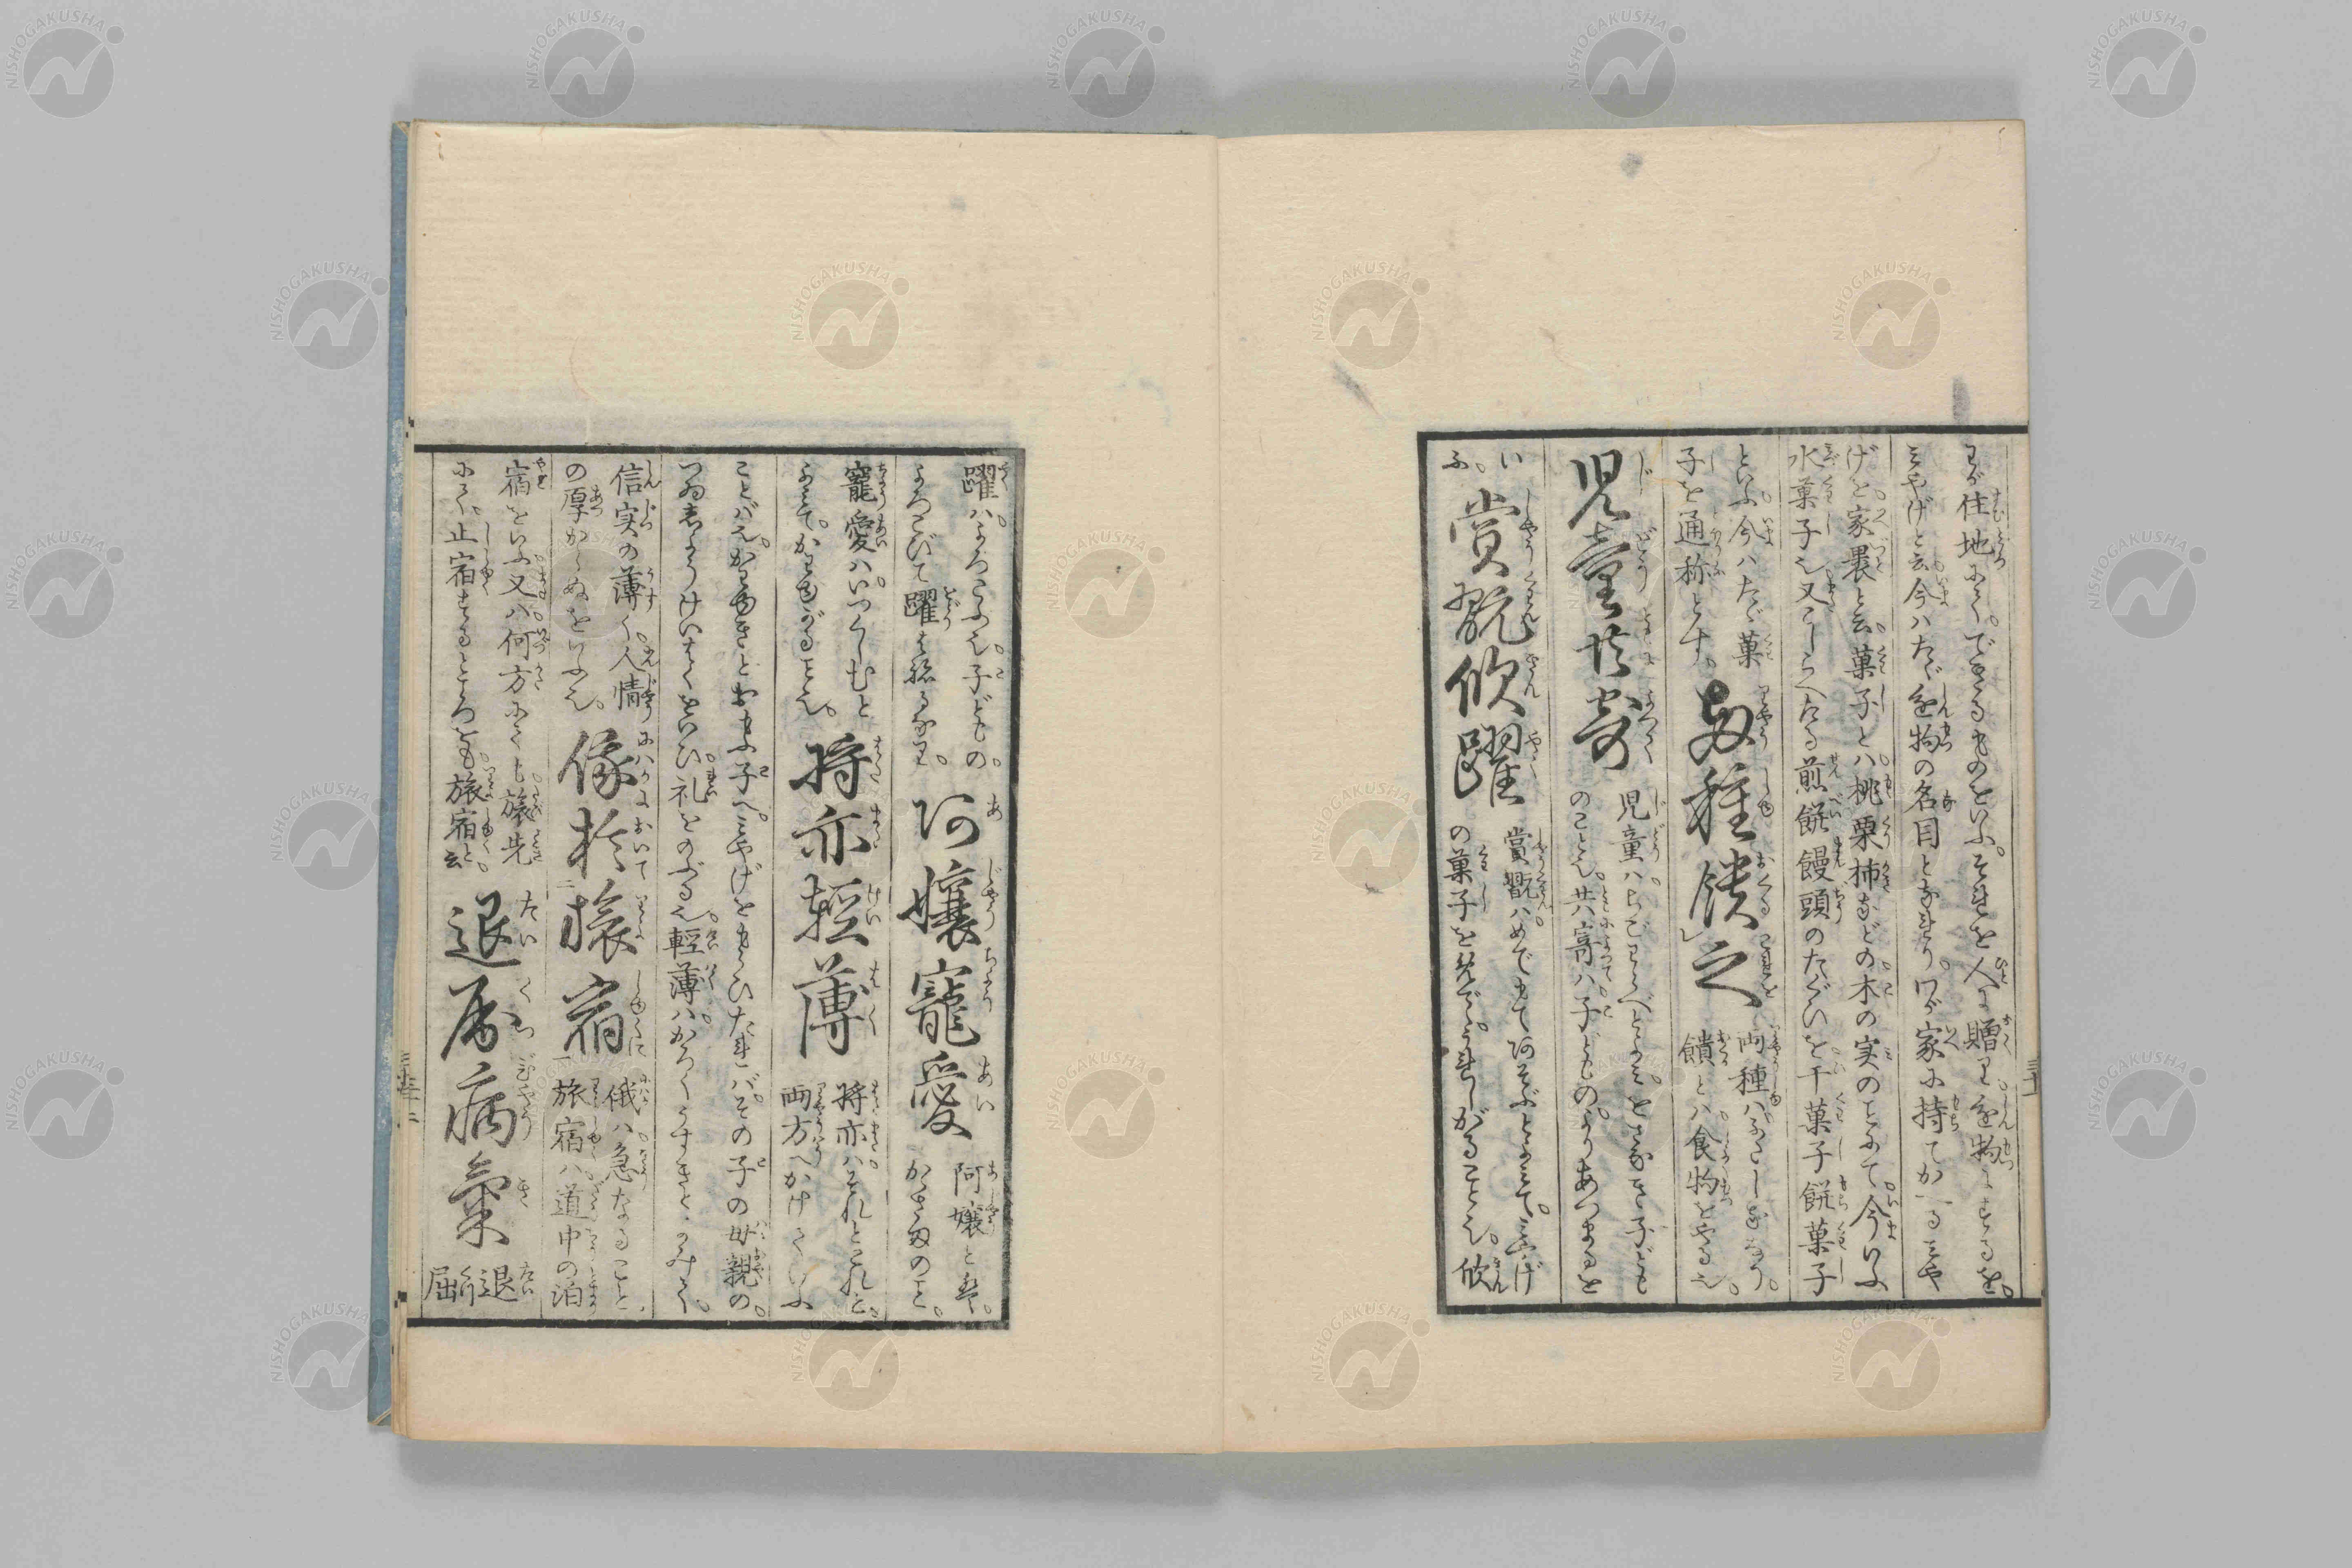 わが住地にて。できるものをいふ。それを人に贈り。進物にするを。
みやげと云今ハたゞ進物の名目となれり。わが家に持てかへるみや
げを。家裹と云。菓子とハ。桃栗柿などの。木の実のことにて。今いふ
水菓子也又こしらへたる煎餅饅頭のたぐひを干菓子餅菓子
といふ。今ハたゞ菓
子を通称とす。
両種饋之
両種ハふたしななり。
饋とハ食物をやる也。
児童共寄
児童ハ。ちごわらべとよみ。をさなき子ども
のこと也。共寄ハ子どもの。よりあつまるを
い
ふ。
賞翫欣躍
賞翫ハ。めでもてあそぶとよみて。みやげ
の菓子をめで。うれしがること也。欣
躍ハ。よろこぶ也。子どもの。
よろこびて躍はねるなり。
阿嬢寵愛
阿嬢とハ。
かゝさまのこと。
寵愛ハ。いつくしむと
よみて。かわゆがること也。
将亦軽薄
将亦ハ。それとこれと。
両方へかけていふ
ことバ也。かわゆきとおもふ子へ。みやげをもらひたれバ。その子の母親の。
つゐしようけいはくをいひ。礼をのぶる也。軽薄ハ。かろくうすきとよみて。
信実の薄く。人情
の厚からぬをいふ也。
俄於旅宿
俄ハ。急なること。
旅宿ハ道中の泊
宿をいふ又ハ。何方にても。旅先
にて。止宿するところをも。旅宿と云。
退屈病気
退
屈